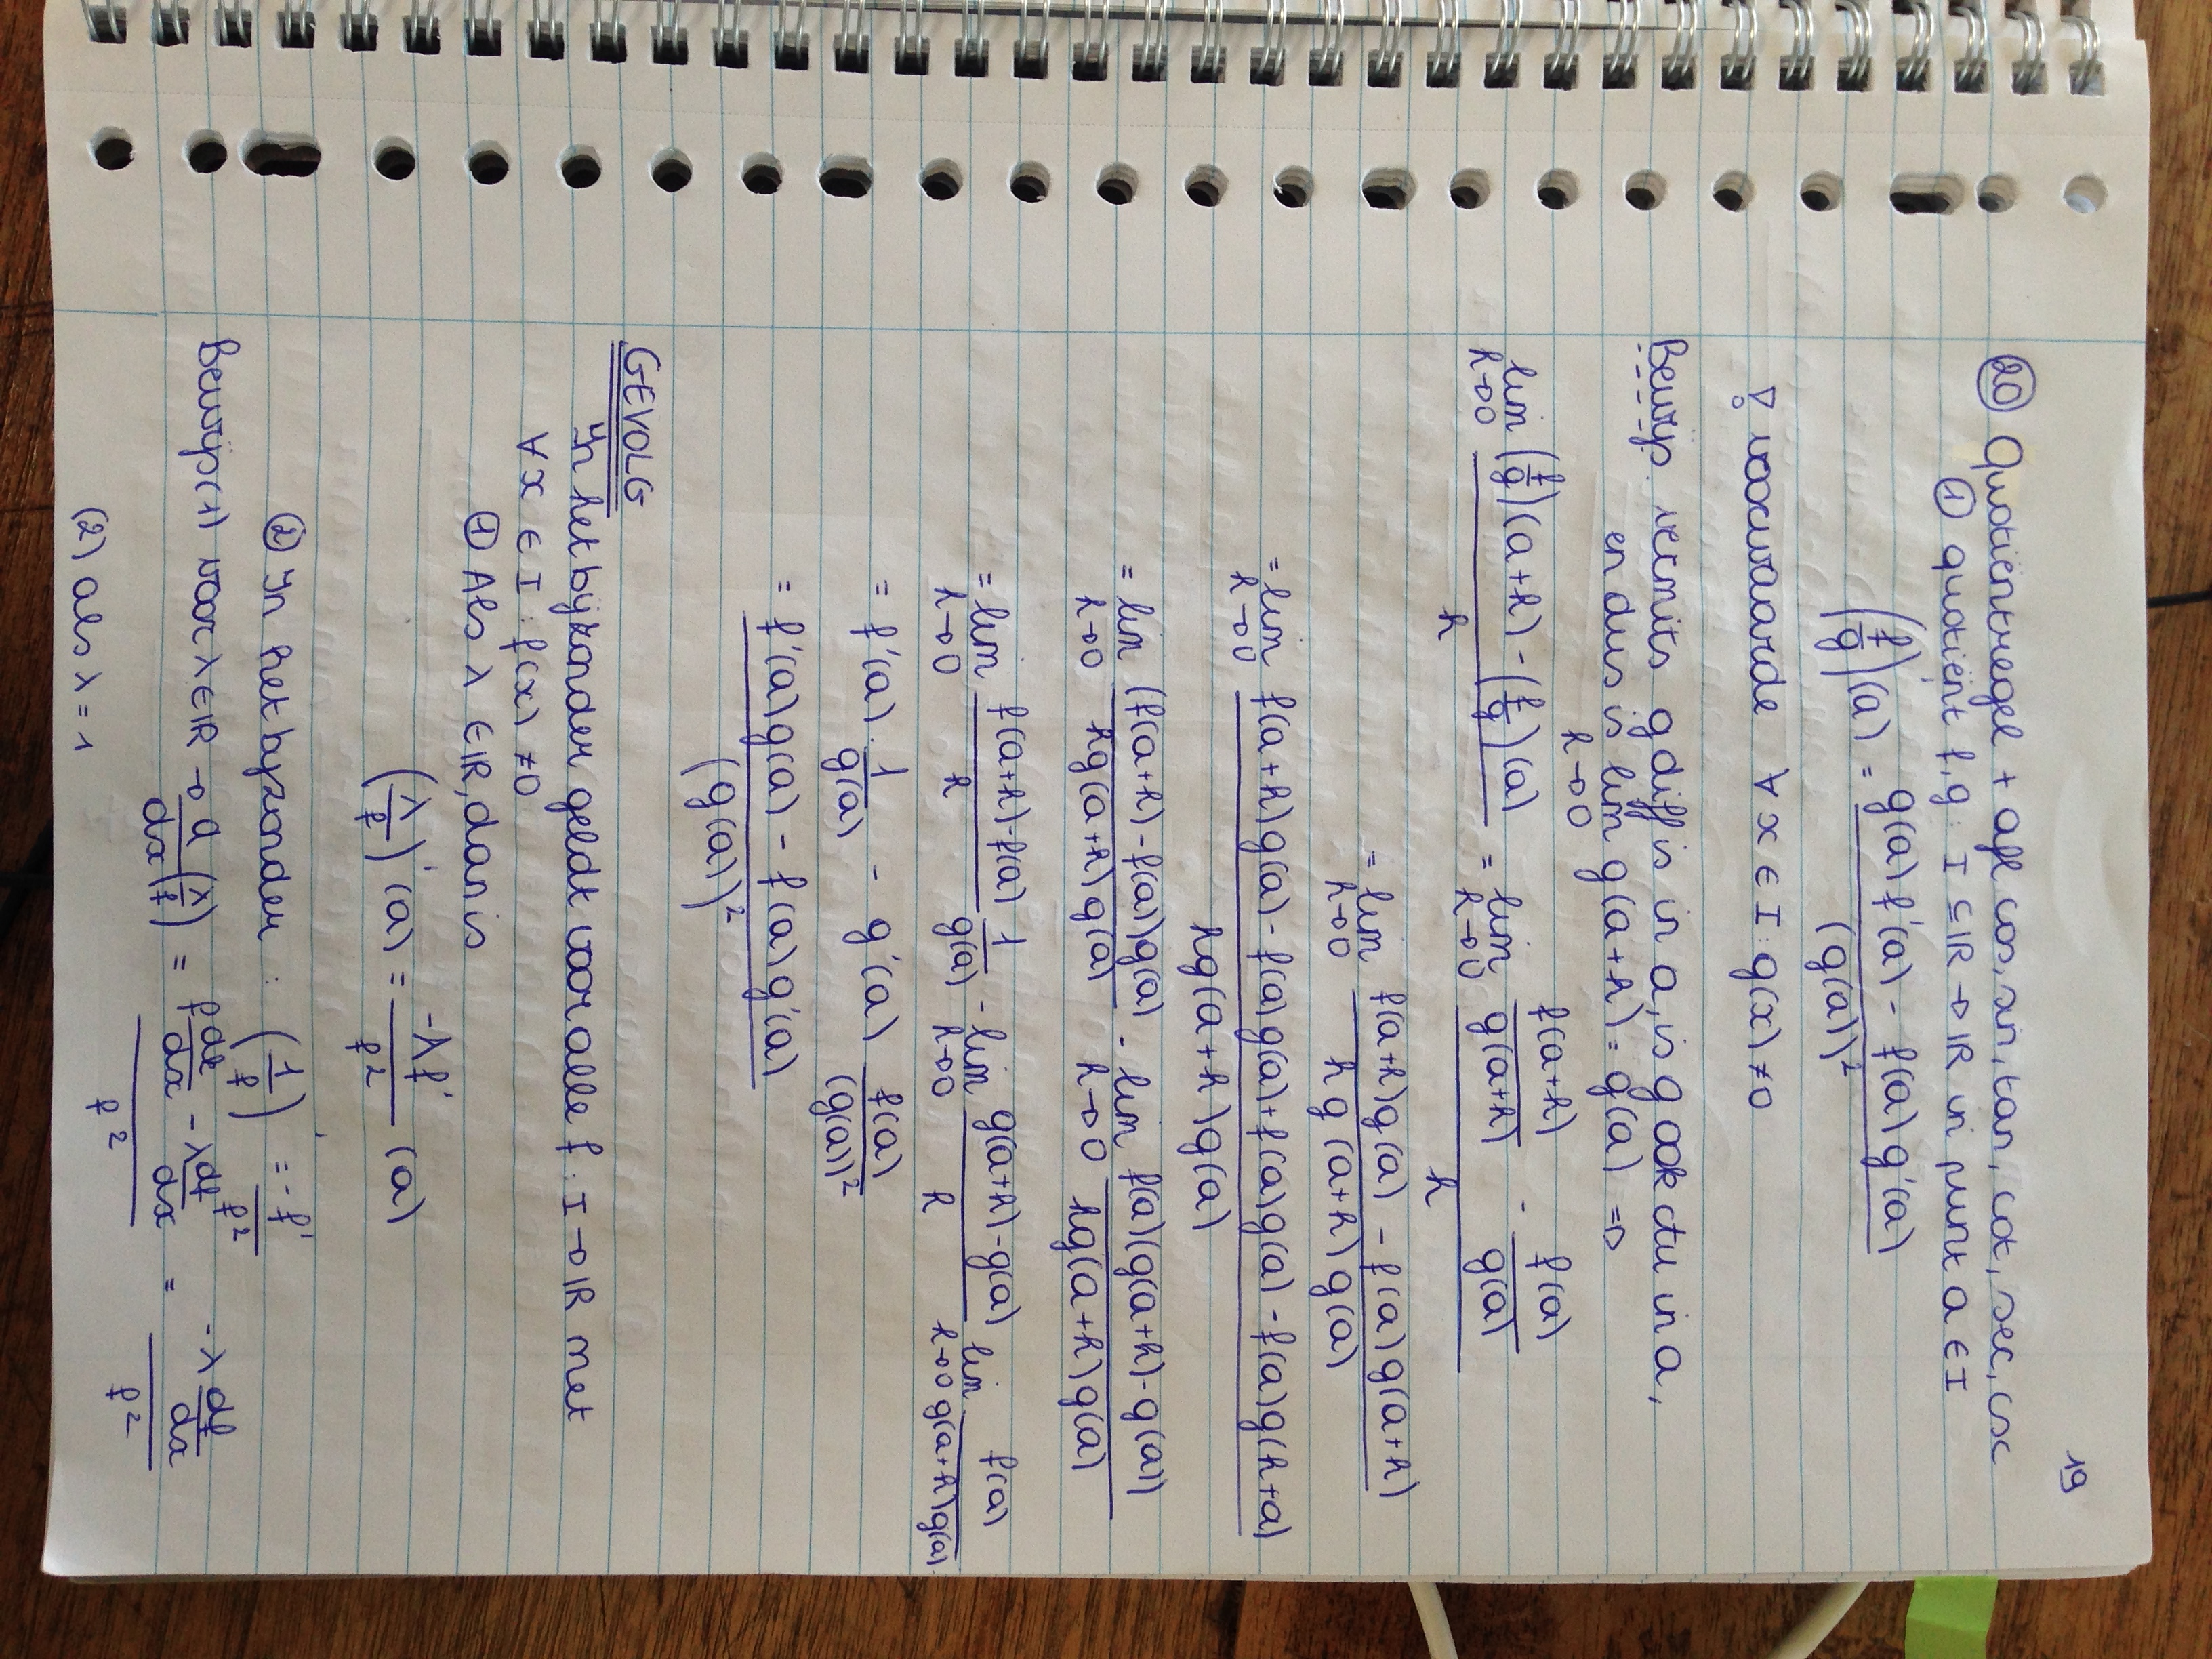 19
(20) Quotiëntregel + afl cos, sin, tan, cot, sec, csc
① quotiënt f, g : I ⊆ ℝ → ℝ in punt a ∈ I
(f/g)'(a) = (g(a) f'(a) - f(a) g'(a)) / (g(a))²
! voorwaarde ∀ x ∈ I : g(x) ≠ 0
Bewijs. vermits g diff is in a, is g ook ctu in a,
en dus is lim h→0 g(a+h) = g(a) ⇒
lim h→0 ((f/g)(a+h) - (f/g)(a)) / h = lim h→0 (f(a+h)/g(a+h) - f(a)/g(a)) / h
= lim h→0 (f(a+h)g(a) - f(a)g(a+h)) / (h g(a+h) g(a))
= lim h→0 (f(a+h)g(a) - f(a)g(a) + f(a)g(a) - f(a)g(h+a)) / (hg(a+h)g(a))
= lim h→0 ((f(a+h) - f(a))g(a)) / (hg(a+h)g(a)) - lim h→0 (f(a)(g(a+h) - g(a))) / (hg(a+h)g(a))
= lim h→0 (f(a+h) - f(a)) / h 1/g(a) - lim h→0 (g(a+h) - g(a)) / h lim h→0 f(a) / (g(a+h)g(a))
= f'(a) · 1/g(a) - g'(a) f(a)/(g(a))²
= (f'(a)g(a) - f(a)g'(a)) / (g(a))²
GEVOLG
In het bijzonder geldt voor alle f : I → ℝ met
∀x ∈ I : f(x) ≠ 0
① Als λ ∈ ℝ, dan is
(λ/f)'(a) = -λf'/f² (a)
② In het bijzonder : (1/f)' = -f'/f²
Bewijs (1) voor λ ∈ ℝ → d/dx (λ/f) = (f dλ/dx - λ df/dx) / f² = (-λ df/dx) / f²
(2) als λ = 1